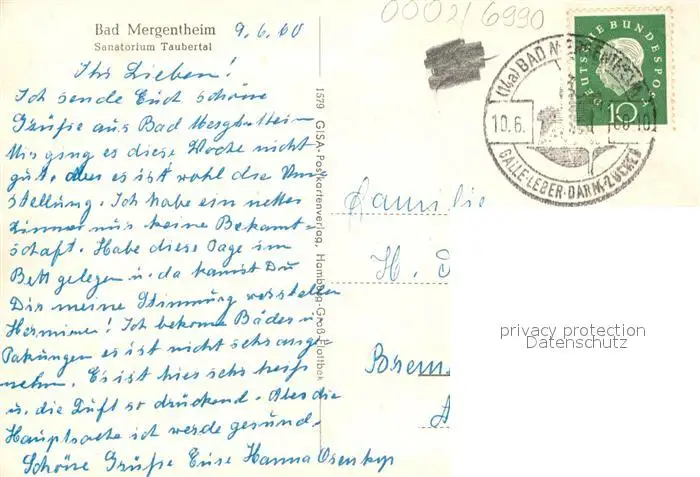 Bad Mergentheim
Sanatorium Taubertal
9.6.60
Ihr Lieben!
Ich sende Euch schöne
Grüße aus Bad Mergentheim
Mir ging es diese Woche nicht
gut, aber es ist wohl die Um-
stellung. Ich habe ein nettes
Zimmer nur keine Bekannt-
schaft. Habe diese Tage im
Bett gelegen u. da kannst Du
Dir meine Stimmung vorstellen
Hermine! Ich bekomme Bäder u.
Pakungen es ist nicht sehr ange-
nehm. Es ist hier sehr heiß
u. die Luft so drückend. Aber die
Hauptsache ich werde gesund.
Schöne Grüße Eure Hanna
1579 GISA-Postkartenverlag, Hamburg-Groß-Flottbek
0002/6990
DEUTSCHE BUNDESPOST
10
(14a) BAD MERGENTHEIM
10.6.
GALLE·LEBER·DARM·ZUCKER
Familie
H. D
Brem
privacy protection
Datenschutz